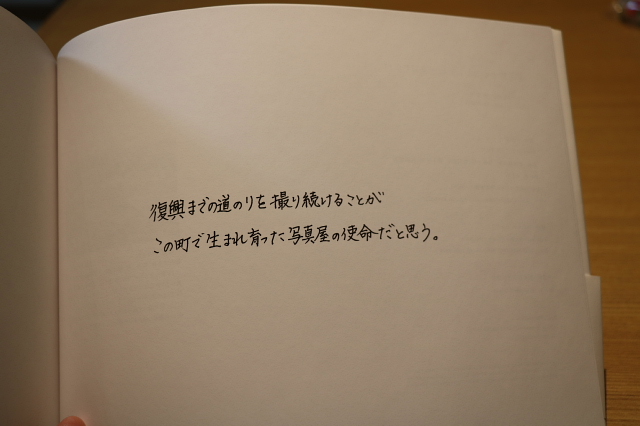 復興までの道のりを撮り続けることが
この町で生まれ育った写真屋の使命だと思う。